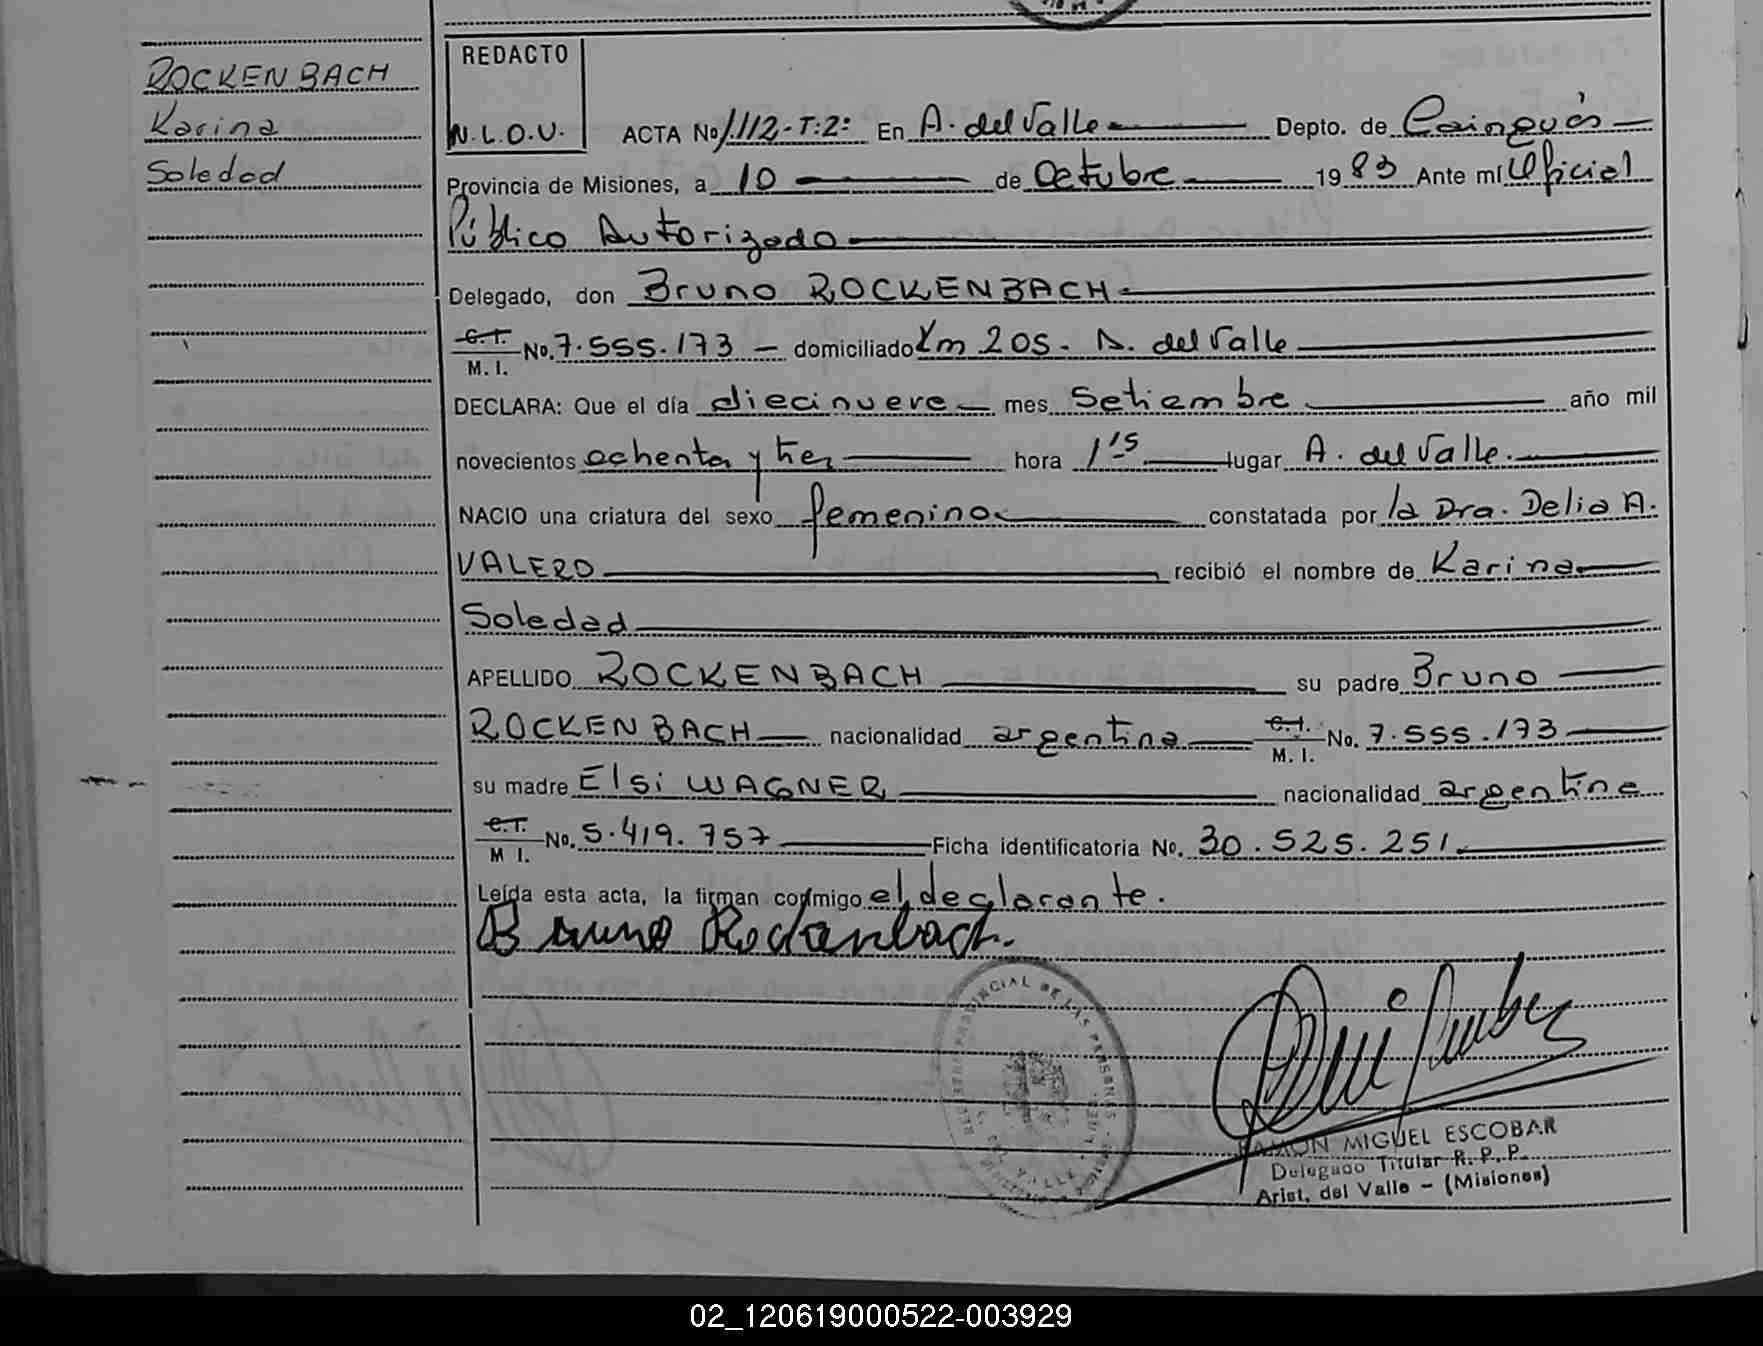 ROCKENBACH
Karina
Soledad
REDACTO
N.L.O.U.
ACTA No 1.112-T:2: En A. del Valle Depto. de Cainguás
Provincia de Misiones, a 10 de Octubre 1983 Ante mí Oficial
Público Autorizado
Delegado, don Bruno ROCKENBACH
C.I. M. I. No. 7.555.173 - domiciliado Km 205. A. del Valle
DECLARA: Que el día diecinueve mes Setiembre año mil
novecientos ochenta y tres hora 1'15 lugar A. del Valle.
NACIO una criatura del sexo femenino constatada por la Dra. Delia A.
VALERO recibió el nombre de Karina
Soledad
APELLIDO ROCKENBACH su padre Bruno
ROCKENBACH nacionalidad argentina C.I. M. I. No. 7.555.173
su madre Elsi WAGNER nacionalidad argentina
C.I. M I. No. 5.419.757 Ficha identificatoria No. 30.525.251.
Leída esta acta, la firman conmigo el declarante.
Bruno Rockenbach.
PROVINCIAL DE LAS PERSONAS
RAMON MIGUEL ESCOBAR
Delegado Titular R. P. P.
Arist. del Valle - (Misiones)
02_120619000522-003929